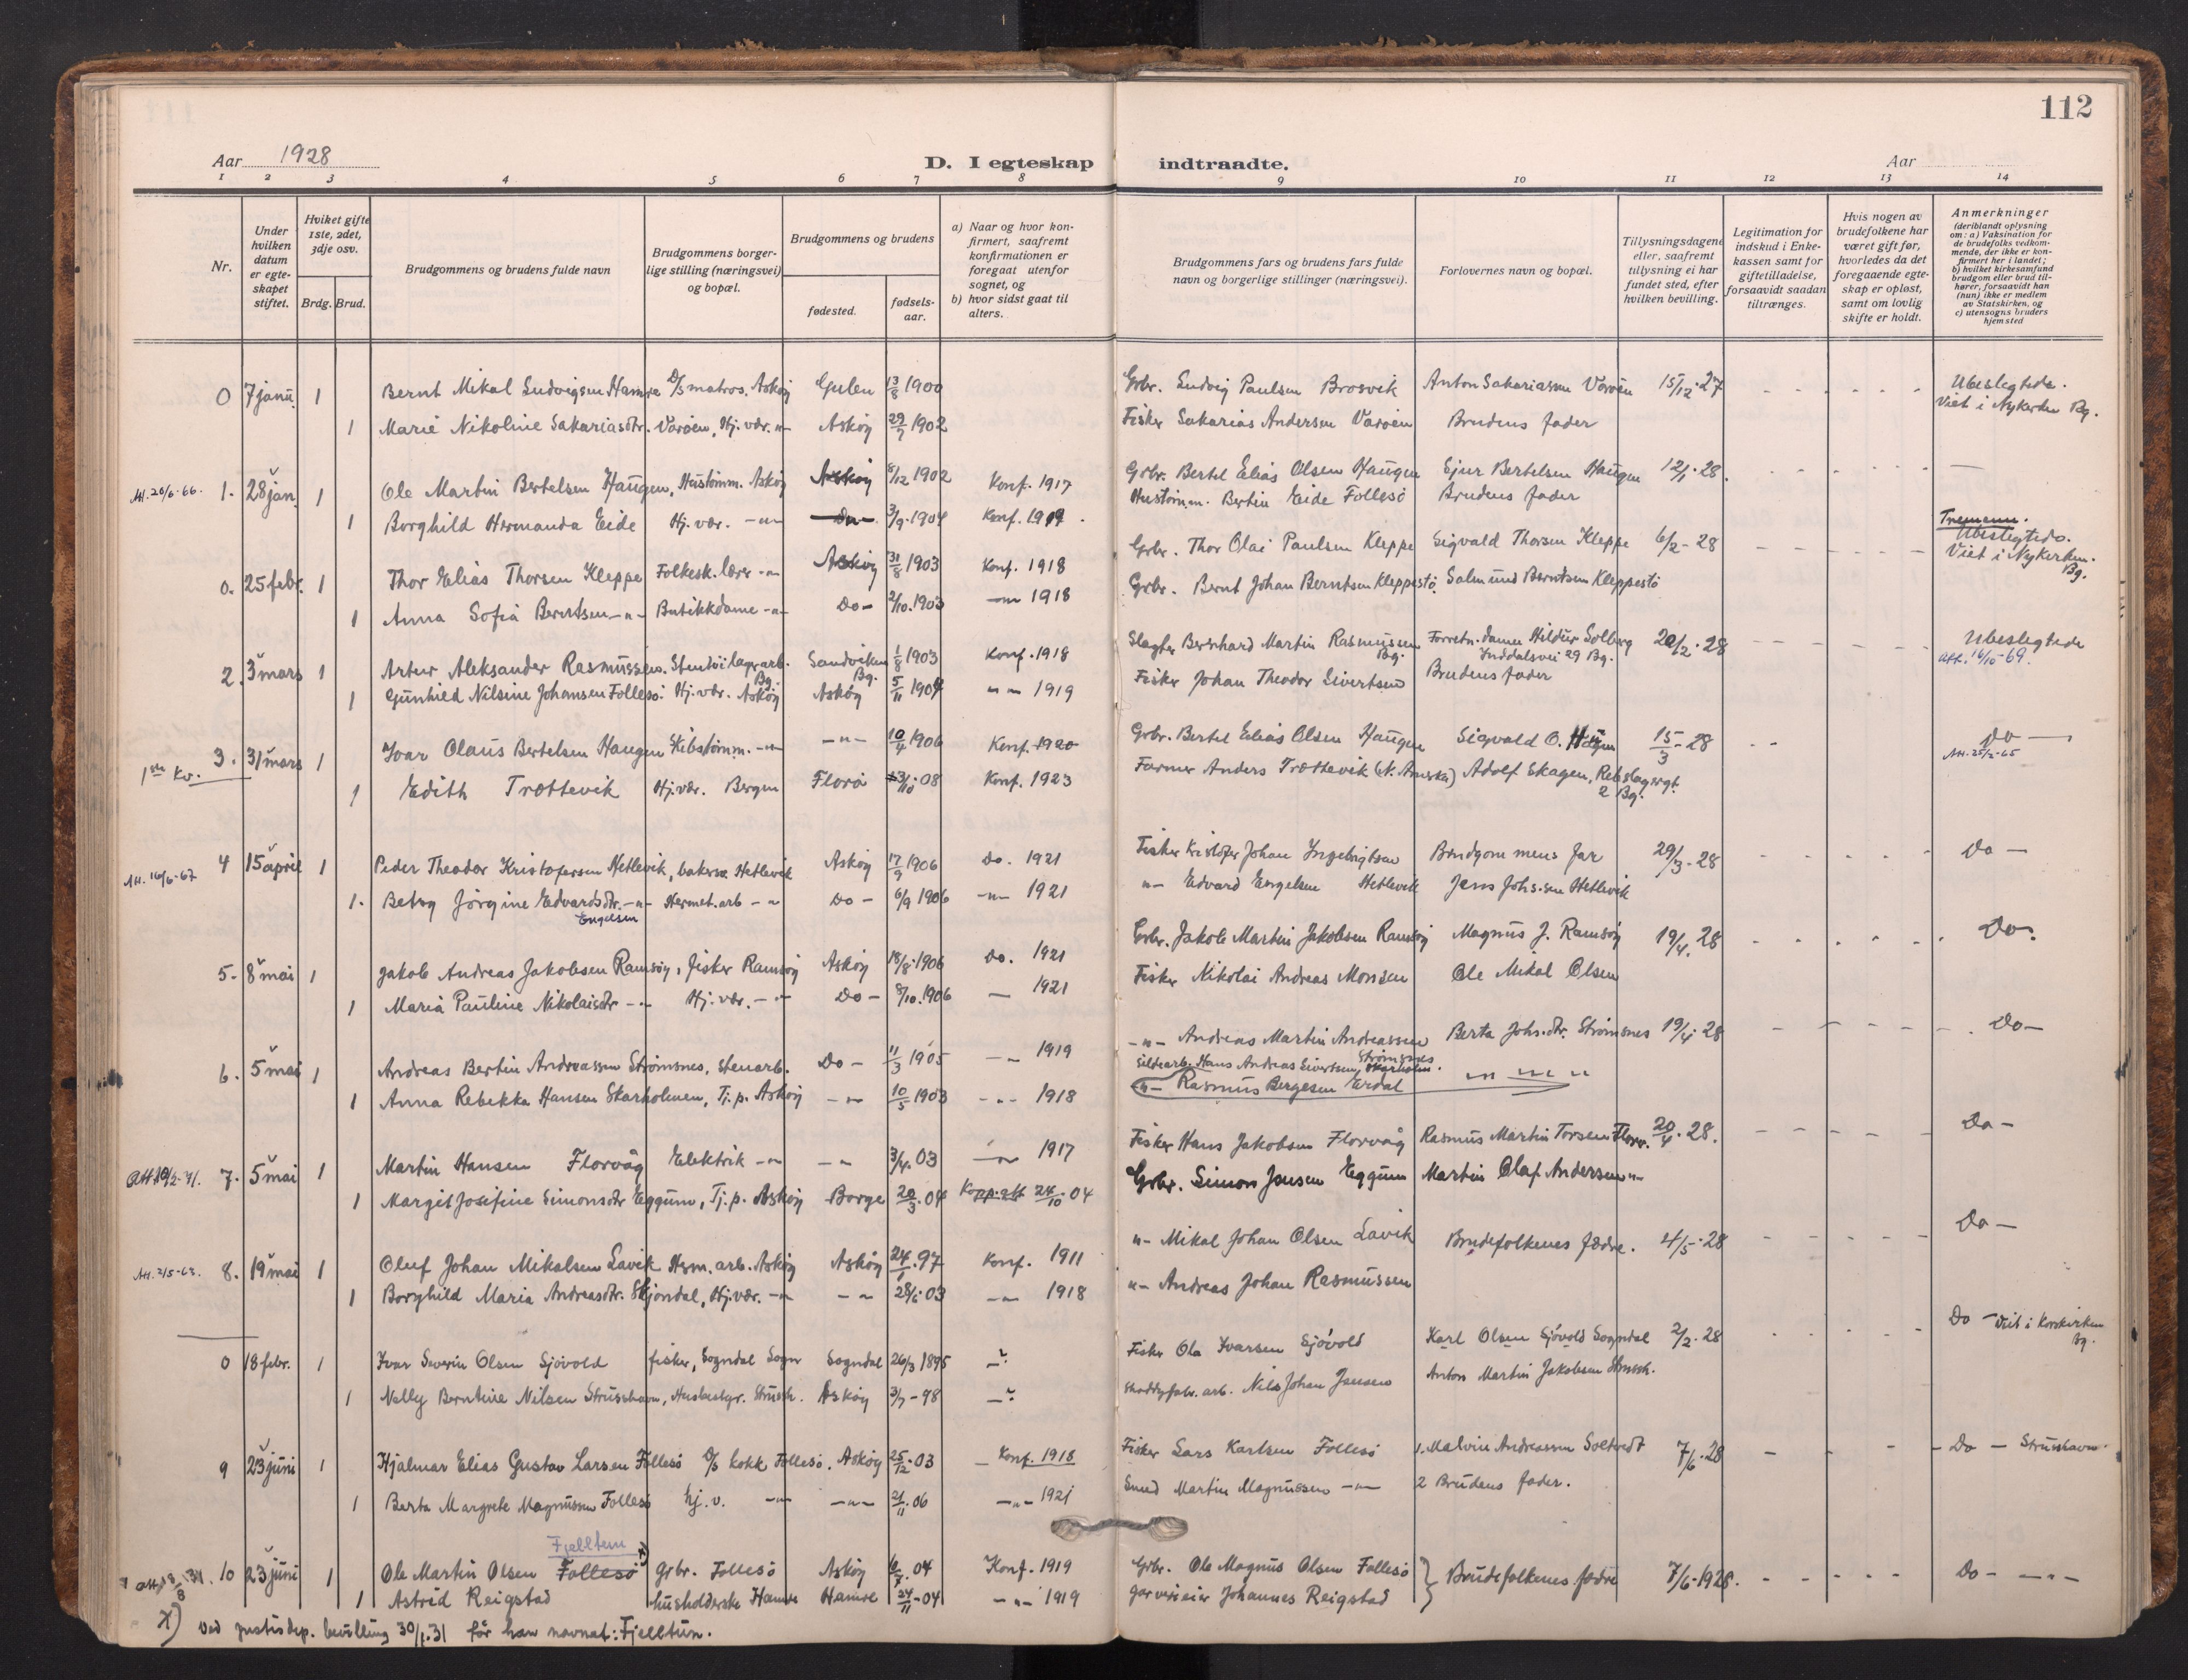 112
Aar 1928
D. I egteskap indtraadte.
Aar
1 2 3 4 5 6 7 8 9 10 11 12 13 14
Nr.
Under hvilken datum er egteskapet stiftet.
Hviket gifte 1ste, 2det, 3dje osv.
Brdg. Brud.
Brudgommens og brudens fulde navn
Brudgommens borgerlige stilling (næringsvei) og bopæl.
Brudgommens og brudens
fødested.
fødselsaar.
a) Naar og hvor konfirmert, saafremt konfirmationen er foregaat utenfor sognet, og
b) hvor sidst gaat til alters.
Brudgommens fars og brudens fars fulde navn og borgerlige stillinger (næringsvei).
Forlovernes navn og bopæl.
Tillysningsdagene eller, saafremt tillysning ei har fundet sted, efter hvilken bevilling.
Legitimation for indskud i Enkekassen samt for giftetilladelse, forsaavidt saadan tiltrænges.
Hvis nogen av brudefolkene har været gift før, hvorledes da det foregaaende egteskap er opløst, samt om lovlig skifte er holdt.
Anmerkninger (deriblandt oplysning om: a) Vaksination for de brudefolks vedkommende, der ikke er konfirmert her i landet; b) hvilket kirkesamfund brudgom eller brud tilhører, forsaavidt han (hun) ikke er medlem av Statskirken, og c) utensogns bruders hjemsted
0 7 janu. 1 Bernt Mikal Ludvigsen Hamre D/s matros. Askøy Gulen 13/8 1900 Grbr. Ludvig Paulsen Brosvik Anton Sakariassen Varøen 15/12-27 Ubeslegtede. Viet i Nykirken Bg.
1 Marie Nikoline Sakariasdtr. Varøen, Hj. vær. -"- Askøy 29/7 1902 Fisker Sakarias Andersen Varøen Brudens fader
Att. 20/6-66. 1. 28 jan. 1 Ole Martin Bertelsen Haugen, Hustømm. Askøy Askøy 8/12 1902 Konf. 1917 Grbr. Bertel Elias Olsen Haugen Ejur Bertelsen Haugen 12/1-28.
1 Borghild Hermanda Eide Hj. vær. -"- Do- 3/9-1904 Konf. 1919. Hustømm. Bertin Eide Follesø Brudens fader
0. 25 febr. 1 Thor Elias Thorsen Kleppe Folkesk. lærer -"- Askøy 31/8 1903 Konf. 1918 Grbr. Thor Olai Paulsen Kleppe Sigvald Thorsen Kleppe 6/2-28 Tremenn. Ubeslegtede. Viet i Nykirken. Bg.
1 Anna Sofia Berntsen -"- Butikkdame -"- Do- 2/10.1903 -"- 1918 Grbr. Bernt Johan Berntsen Kleppestø. Salmund Berntsen Kleppestø
2. 3 mars 1 Artur Aleksander Rasmussen. Stentøilagerarb. Bg. Sandviken Bg. 1/8 1903 Konf. 1918 Slagter Bernhard Martin Rasmussen Bg. Forretn. damer Hildur Solberg Inddalsvei 29 Bg. 20/2-28 Ubeslegtede Att. 16/10-69.
1 Gunhild Nilsine Johansen Follesø. Hj. vær. Askøy Askøy 5/11 1904 -"- 1919 Fisker Johan Theodor Sivertsen Brudens fader
1ste kv. 3. 31 mars 1 Ivar Olaus Bertelsen Haugen Skibstømm. -"- -"- 10/4 1906 Konf. 1920 Grbr. Bertel Elias Olsen Haugen Sigvald O. Haugen 15/3-28 Do- Att. 25/2-65
1 Edith Trættevik Hj. vær. Bergen Florø 3/10-08 Konf. 1923 Farmer Anders Trættevik (N. Amerka) Adolf Skagen, Rebslagergt. 2 Bg.
Att. 16/6-67 4 15 april 1 Peder Theodor Kristofersen Hetlevik, bakersv. Hetlevik Askøy 17/9 1906 Do. 1921 Fisker Kristofer Johan Ingebrigtsen Brudgommens far 29/3-28 Do-
1. Betsy Jørgine Edvardsdtr. -"- Hermet. arb -"- Do- 6/9 1906 -"- 1921 "- Edvard Engelsen Hetlevik Jens Johs.sen Hetlevik
Engelsen
5. 8 mai 1 Jakob Andreas Jakobsen Ramsøy, fisker Ramsøy Askøy 18/8-1906 Do. 1921 Grbr. Jakob Martin Jakobsen Ramsøy Magnus J. Ramsøy 19/4.28 Do.
1 Maria Pauline Nikolaisdtr -"- Hj. vær. -"- Do- 8/10.1906 - 1921 Fisker Nikolai Andreas Monsen Ole Mikal Olsen
6. 5 mai 1 Andreas Bertin Andreassen Strømsnes, stenarb. Do- 11/3 1905 -"- 1919 -"- Andreas Martin Andreassen Strømsnes Berta Johs.dtr. Strømsnes 19/4-28 Do-
1 Anna Rebekka Hansen Skarholmen, Tj. p. Askøy -"- 10/5 1903 -"- 1918 Sildearb. Hans Andreas Sivertsen, Skarholm. -"- -"-
"- Rasmus Bergesen Erdal
Att. 10/2-41. 7. 5 mai 1 Martin Hansen Florvåg Elektrik -"- -"- 3/4.03 -"- 1917 Fisker Hans Jakobsen Florvåg Rasmus Martin Torsen Florv. 20/4-28. Do-
1 Margit Josefine Simonsdtr Eggum, Tj. p. Askøy Borge 20/3.04 Kopp.att 24/10-04 Grbr. Simon Jensen Eggum Martin Olaf Andersen -"-
Att. 2/5-63. 8. 19 mai 1 Oluf Johan Mikalsen Lavik Herm. arb. Askøy Askøy 24/1.97 Konf. 1911 "- Mikal Johan Olsen Lavik Brudefolkenes fædre. 4/5-28 Do-
1 Borghild Maria Andreasdtr. Skjondal, Hj. vær. -"- -"- 28/6-03 -"- 1918 "- Andreas Johan Rasmussen
0 18 febr. 1 Ivar Severin Olsen Sjøvold fisker, Sogndal Sogn Sogndal 26/3 1895 -"- Fisker Ola Ivarsen Sjøvold Karl Olsen Sjøvold Sogndal 2/2-28 Do- Viet i Korskirken Bg.
1 Nelly Berntine Nilsen Strusshavn, Husbestyr. Strussh. Askøy 3/7-98 -"- Shoddyfabr. arb. Nils Johan Jansen Anton Martin Jakobsen Strussh.
9 23 juni 1 Hjalmar Elias Gustav Larsen Follesø D/s kokk Follesø. Askøy 25/12-03 Konf. 1918 Fisker Lars Karlsen Follesø 1. Malvin Andreassen Soltvedt 7/6-28 - Do - Strusshavn.
1 Berta Margrete Magnussen Follesø hj. v. -"- -"- 21/11-06 -"- 1921 Smed Martin Magnussen -"- 2 Brudens fader.
Fjelltun
Att. 18/8 31. 10 23 juni 1 Ole Martin Olsen Follesø x) grbr. Follesø Askøy 6/7-04 Konf. 1919 Grbr. Ole Magnus Olsen Follesø Brudefolkenes fædre 7/6-1928. Do- -"-
1 Astrid Reigstad husholderske Hamre Hamre 24/11-04 -"- 1919 garverieier Johannes Reigstad
x) Ved justisdep. bevilling 30/1.31 får han navnet: Fjelltun.